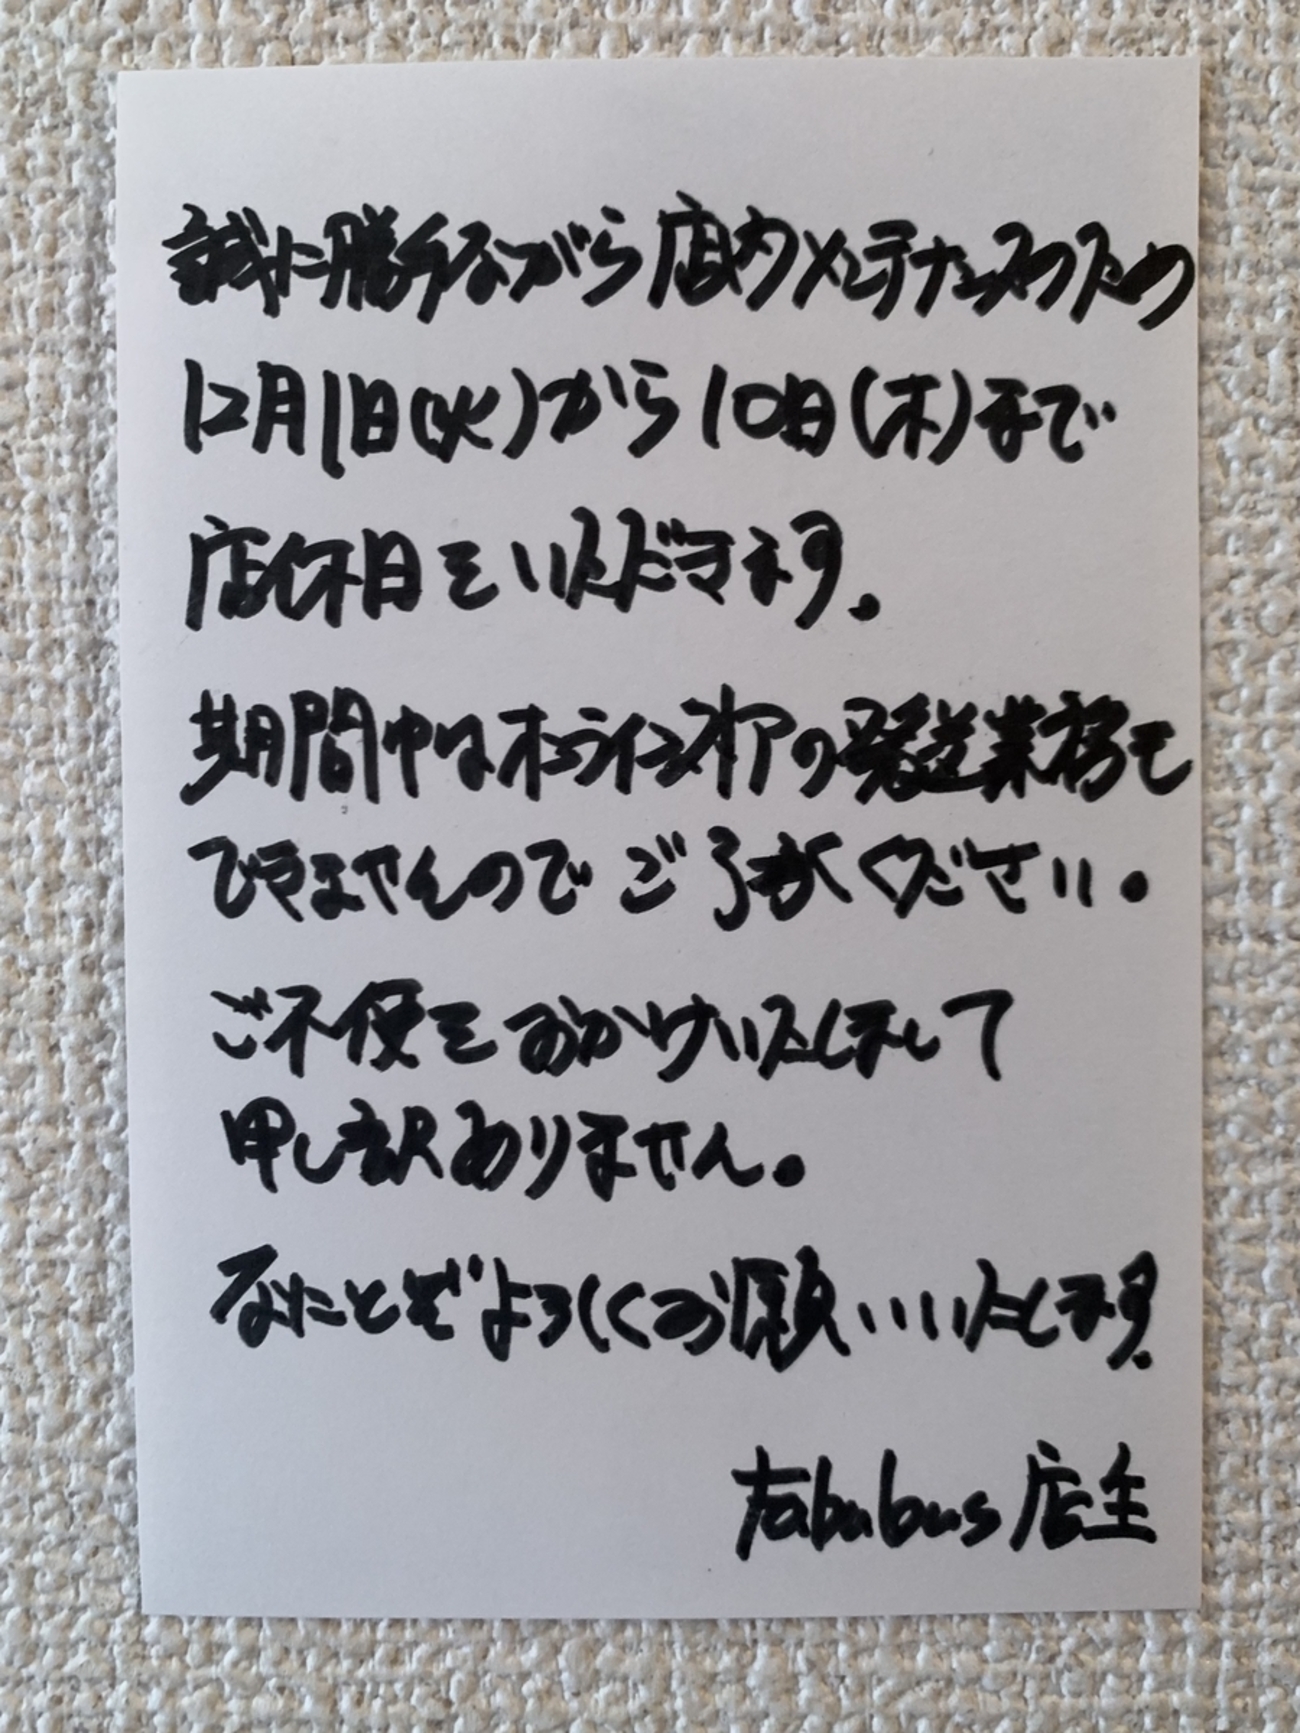 誠に勝手ながら店内メンテナンスのため
12月1日(火)から10日(木)まで
店休日をいただきます。
期間中はオンラインストアの発送業務も
できませんのでご了承ください。
ご不便をおかけいたしまして
申し訳ありません。
なにとぞよろしくお願いいたします。
tabubus 店主